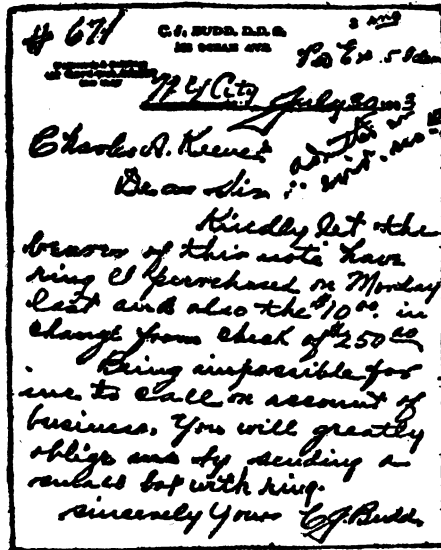 3 Aug
# 671
C. J. BUDD, D.D.S.
OCEAN AVE.
Pd Ex. 5
N Y City July 30
Charles A. Keene
Dear Sir:
Kindly let the
bearer of this note have
ring I purchased on Monday
last and also the $10.00 in
change from check of $250.00
Being impossible for
me to call on account of
business. You will greatly
oblige me by sending a
ring box with ring.
Sincerely Yours C J. Budd.